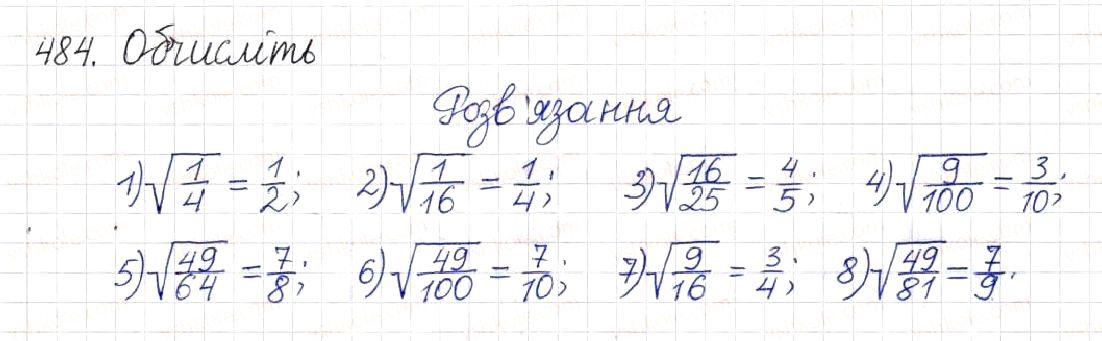 484. Обчисліть
Розв'язання
1) √(1/4) = 1/2; 2) √(1/16) = 1/4; 3) √(16/25) = 4/5; 4) √(9/100) = 3/10;
5) √(49/64) = 7/8; 6) √(49/100) = 7/10; 7) √(9/16) = 3/4; 8) √(49/81) = 7/9.